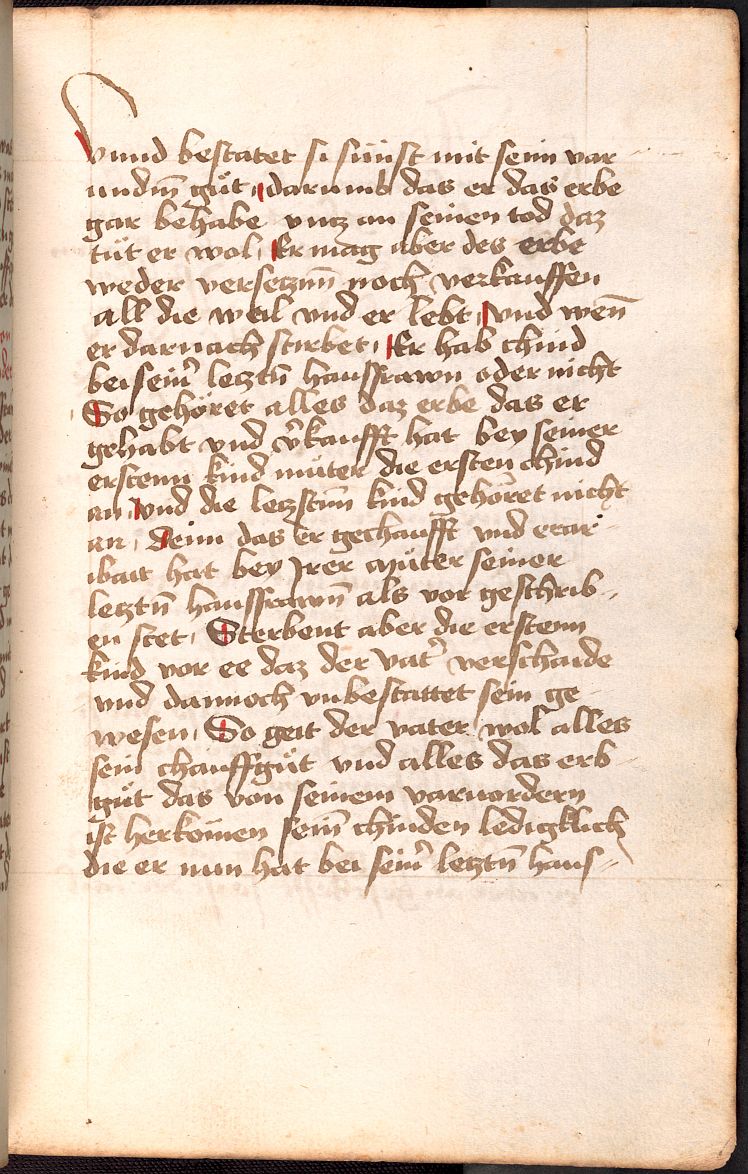 vnnd bestatet si sünst mit seim var
undm̄ güt, darumb das er das erbe
gar behabe vntz an seinen tod daz
tüt er wol, Er mag aber des erbe
weder versetznn̄ noch verkauffen
all die weil vnd er lebt, vnd wen̄
er darnach stirbet, Er hab chind
bei sein̄ letztn̄ hausfrawn oder nicht
So gehöret alles daz erbe das er
gehabt vnd v̄kaufft hat bey seiner
erstenn kind müter die ersten chind
an, vnd die letzstnn̄ kind gehöret nicht
an, denn das er gechaufft vnd erar-
ibait hat bey Irer müter seiner
letztn̄ hausfrawn̄ als vor geschrib-
en stet, Sterbent aber die erstenn
kind vor ee daz der vat' verschaide
vnd dannoch vnbestattet sein ge-
wesen, So geit der vater wol alles
sein chauffgüt vnd alles das erb-
güt das von seinem varuordern
ist herkömen sein̄ chinden ledigklich
die er nun hat bei sein' letztn̄ haus-